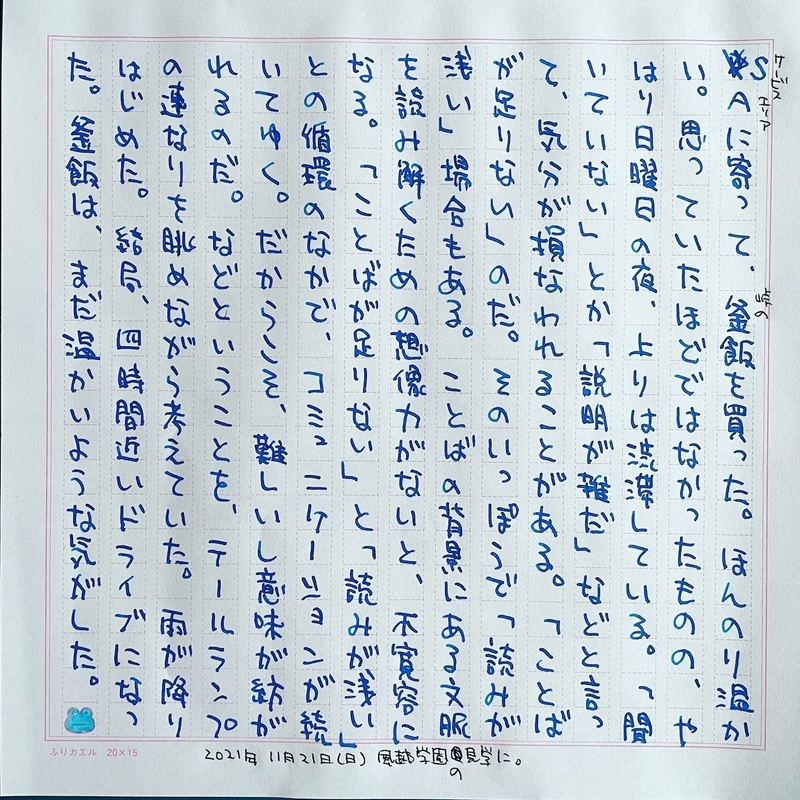 サービス
エリア
峠の
SAに寄って、釜飯を買った。ほんのり温か
い。思っていたほどではなかったものの、や
はり日曜日の夜、よりは渋滞している。「聞
いていない」とか「説明が雑だ」などと言っ
て、気分が損なわれることがある。「ことば
が足りない」のだ。そのいっぽうで「読みが
浅い」場合もある。ことばの背景にある文脈
を読み解くための想像力がないと、不寛容に
なる。「ことばが足りない」と「読みが浅い」
との循環のなかで、コミュニケーションが続
いてゆく。だからこそ、難しいし意味が紡が
れるのだ。などということを、テールランプ
の連なりを眺めながら考えていた。雨が降り
はじめた。結局、四時間近いドライブになっ
た。釜飯は、まだ温かいような気がした。
ふりカエル 20×15
2021年 11月21日(日) 風越学園の見学に。